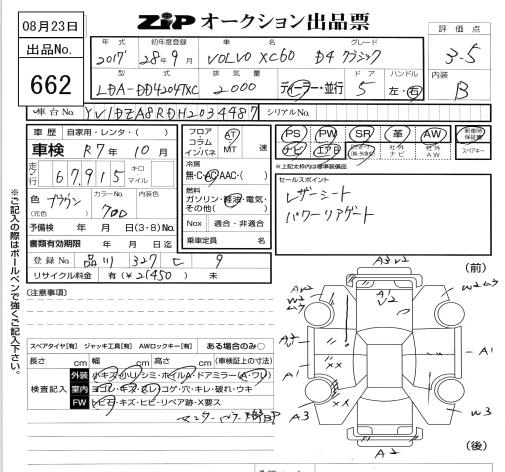 08月23日
出品No.
662
ZIP オークション出品票
評価点
3-5
内装
B
年式 初年度登録 車名 グレード
2017 28年9月 VOLVO XC60 D4 クラシック
型式 排気量 ディーラー・並行 ドア ハンドル
LDA-DD4204TXC 2000 5 左・右
車台No. YV1DZA8RDH2034487 シリアルNo.
車歴 自家用・レンタ・( )
車検 R7年10月
走行 67,915 キロ マイル
色 ブラウン (元色) カラーNo. 700 内装色
予備検 年 月 日(3・8)No.
書類有効期限 年 月 日迄
登録No. 品川 327 9
リサイクル料金 有(¥ ) 未
フロア コラム インパネ AT MT 速
冷房 無・C・AC・AAC・( )
燃料 ガソリン・軽油・電気・その他( )
Nox 適合・非適合
乗車定員 名
PS PW SR 革 AW 新車時保証書
ナビ エアB 社外ナビ 社外AW スペアキー
※上記太枠内は標準装備品
セールスポイント
レザーシート
パワーリアゲート
※ご記入の際はボールペンで強くご記入下さい。
(注意事項)
スペアタイヤ[有] ジャッキ工具[有] AWロックキー[有] ある場合のみ○
長さ cm 幅 cm 高さ cm (車検証上の寸法)
検査記入 外装 小キズ・小凹・シミ・ホイルA・ドアミラー(A・ワレ)
室内 ヨゴレ・キズ・スレ・コゲ・穴・キレ・破れ・ウキ
FW トビ石・キズ・ヒビ・リペア跡・X要ス
(前)
A3 V2
A1
V2
A1
W3
A3
A2
(後)